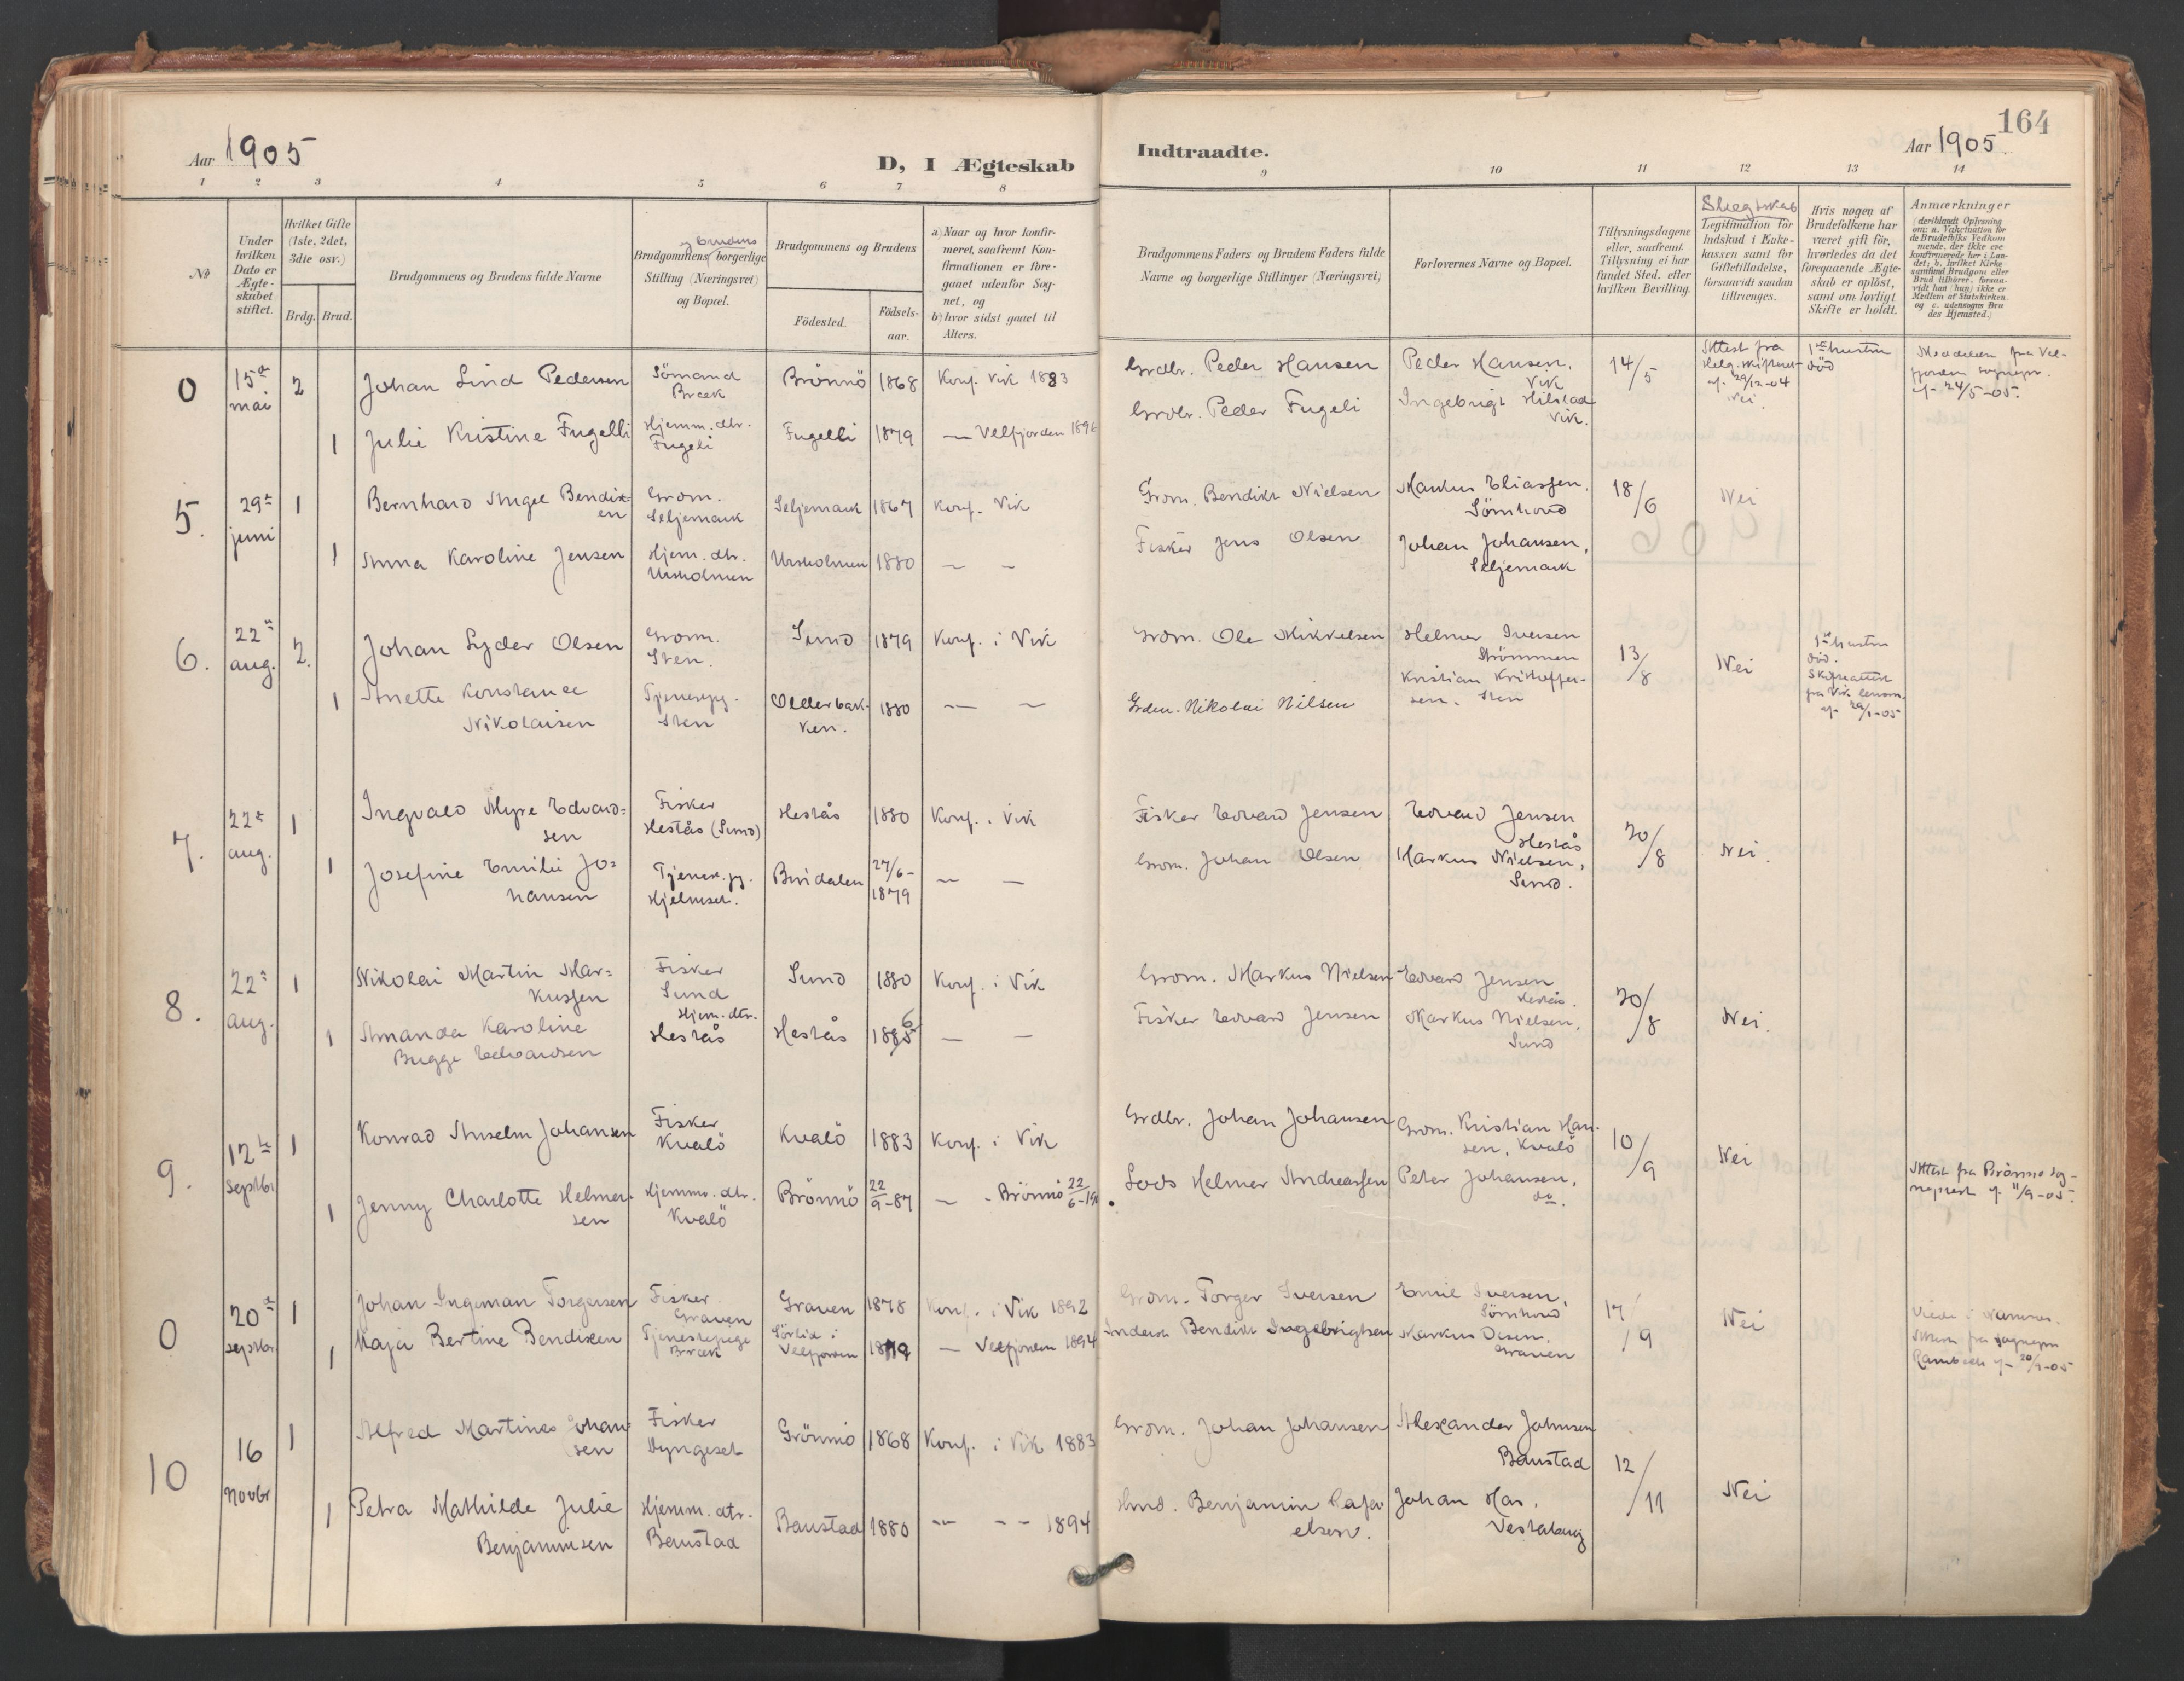 164
Aar 1905
D, I Ægteskab
Indtraadte.
Aar 1905
1 2 3 4 5 6 7 8 9 10 11 12 13 14
No
Under hvilken Dato er Ægteskabet stiftet.
Hvilket Gifte (1ste, 2det, 3die osv.)
Brdg. Brud.
Brudgommens og Brudens fulde Navne
og Brudens
Brudgommens borgerlige Stilling (Næringsvei) og Bopæl.
Brudgommens og Brudens
Födested.
Födsels-aar.
a) Naar og hvor konfirmeret, saafremt Konfirmationen er foregaaet udenfor Sognet, og
b) hvor sidst gaaet til Alters.
Brudgommens Faders og Brudens Faders fulde Navne og borgerlige Stillinger (Næringsvei)
Forlovernes Navne og Bopæl.
Tillysningsdagene eller, saafremt Tillysning ei har fundet Sted, efter hvilken Bevilling.
Slegtskab
Legitimation for Indskud i Enkekassen samt for Giftetilladelse, forsaavidt saadan tiltrænges.
Hvis nogen af Brudefolkene har været gift för, hvorledes da det foregaaende Ægteskab er oplöst, samt om lovligt Skifte er holdt.
Anmærkninger
(deriblandt Oplysning om: a. Vakcination for de Brudefolks Vedkommende, der ikke ere konfirmerede her i Landet; b. hvilket Kirkesamfund Brudgom eller Brud tilhörer, forsavidt han (hun) ikke er Medlem af Statskirken, og c. udensogns Brudes Hjemsted.)
0 15de mai 2 Johan Lind Pedersen Sömand Bræk Brönnö 1868 Konf. Vik 1883 Grdbr. Peder Hansen Peder Hansen, Vik 14/5 Attest fra Helg. skifteret af 29/12-04 Nei 1ste hustru död Meddelelse fra Velfjorden sognepr. af 24/5-05.
1 Julie Kristine Fugelli Hjemm. dtr. Fugeli Fugelli 1879 — Velfjorden 1896 Grdbr. Peder Fugeli Ingebrigt Hilstad Vik.
5. 29de juni 1 Bernhard Angel Bendiksen Grom. Seljemark Seljemark 1867 Konf. Vik Grom. Bendikt Nielsen Markus Eliassen, Sömhovd 18/6 Nei
1 Anna Karoline Jensen Hjem. dtr. Ursholmen Ursholmen 1880 — — Fisker Jens Olsen Johan Johansen, Seljemark
6. 22de aug. 2. Johan Lyder Olsen Grom. Sten. Sund 1879 Konf. i Vik Grom. Ole Mikkelsen Helmer Iversen Strömmen 13/8 Nei 1ste hustru död. Skifteattest fra Vik lensm. af 29/1-05
1 Anette Konstance Nikolaisen Tjenestpg. Sten Olderbakken. 1880 — — Nikolai Nilsen Kristian Kristoffersen. Sten
7. 22de aug. 1 Ingvald Myre Edvardsen Fisker Hestås (Sund) Hestås 1880 Konf. i Vik Fisker Edvard Jensen Edvard Jensen Hestås 20/8 Nei.
1 Josefine Emilie Johansen Tjenest. pg. Hjelmset. Bindalen 27/6-1879 — — Grom. Johan Olsen Markus Nielsen, Sund.
8. 22de aug. 1 Nikolai Martin Markussen Fisker Sund Sund 1880 Konf. i Vik Grom. Markus Nielsen Edvard Jensen Hestås. 20/8 Nei.
1 Amanda Karoline Bugge Edvardsen Hjem. dtr. Hestås Hestås 1886 — — Fisker Edvard Jensen Markus Nielsen, Sund
9. 12te septbr 1 Konrad Anselm Johansen Fisker Kvalö Kvalö 1883 Konf. i Vik Grdbr. Johan Johansen Grom. Kristian Hansen, Kvalö 10/9 Nei Attest fra Brönnö sogneprest af 11/9-05.
1 Jenny Charlotte Helmersen Hjemm. dtr. Kvalö Brönnö 22/9-87 — - Brönnö 22/6-190 Lods Helmer Andreassen Peter Johansen, do.
0 20de septbr 1 Johan Ingeman Torgersen Fisker Graven Graven 1878 Konf. i Vik 1892 Grom. Torger Iversen Emil Iversen, Sömhovd 17/9 Nei Viede i Attest fra sognepr Rambech af 20/9-05
1 Kaja Bertine Bendiksen Tjenestepige Bræk Sörlid i Velfjorden 1879 — Velfjorden 1894 Inderst Bendikt Ingebrigtsen Markus Graven
10 16 novbr 1 Alfred Martines Johansen Fisker Dyngeset Grönmo 1868 Konf. i Vik 1883 Grom. Johan Johansen Alexander Johnsen Baustad 12/11 Nei
1 Petra Mathilde Julie Benjaminsen Hjemm. dtr. Baustad Baustad 1880 — — 1894 Hmd. Benjamin Rafaelsen. Johan Has, Vestabug